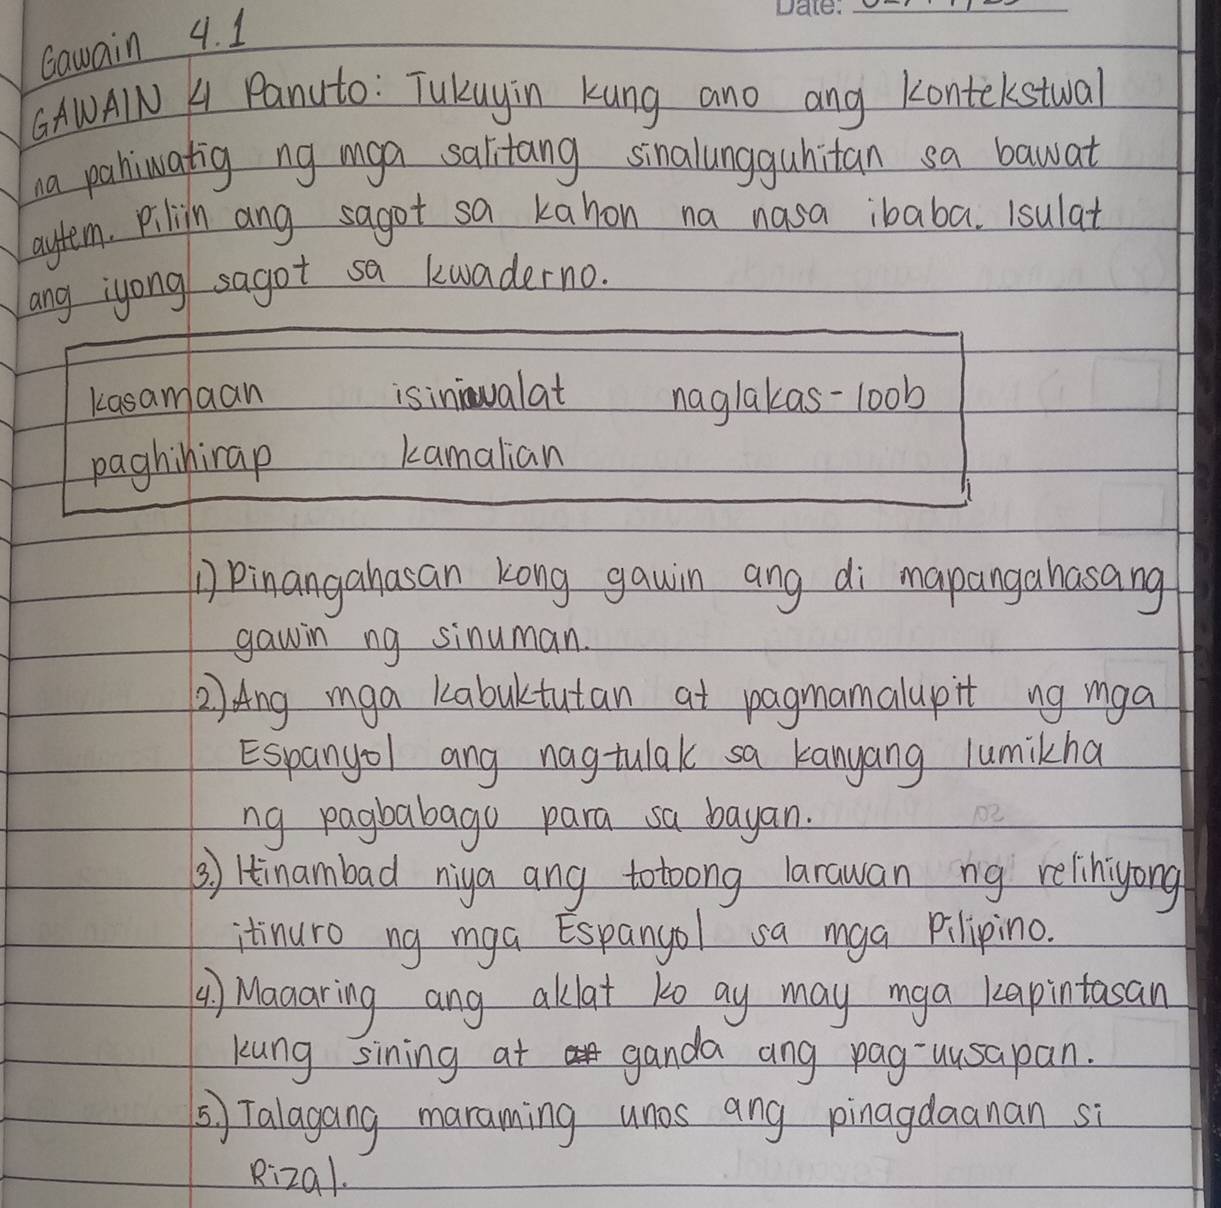 Date:
Gawain 4.1
GAWAIN 4 Panuto: Tukuyin kung ano ang kontekstwal
na pahiwatig ng mga salitang sinalungguhitan sa bawat
aytem. Piliin ang sagot sa kahon na nasa ibaba. Isulat
ang iyong sagot sa kwaderno.
kasamaan isiniwalat naglakas-loob
paghihirap kamalian
1.) Pinangahasan kong gawin ang di mapangahasang
gawin ng sinuman.
2.) Ang mga kabuktutan at pagmamalupit ng mga
Espanyol ang nagtulak sa kanyang lumikha
ng pagbabago para sa bayan.
3.) Hinambad niya ang totoong larawan ng relihiyong
itinuro ng mga Espanyol sa mga Pilipino.
4.) Maaaring ang aklat ko ay may mga kapintasan
kung sining at ganda ang pag-uusapan.
5.) Talagang maraming unos ang pinagdaanan si
Rizal.